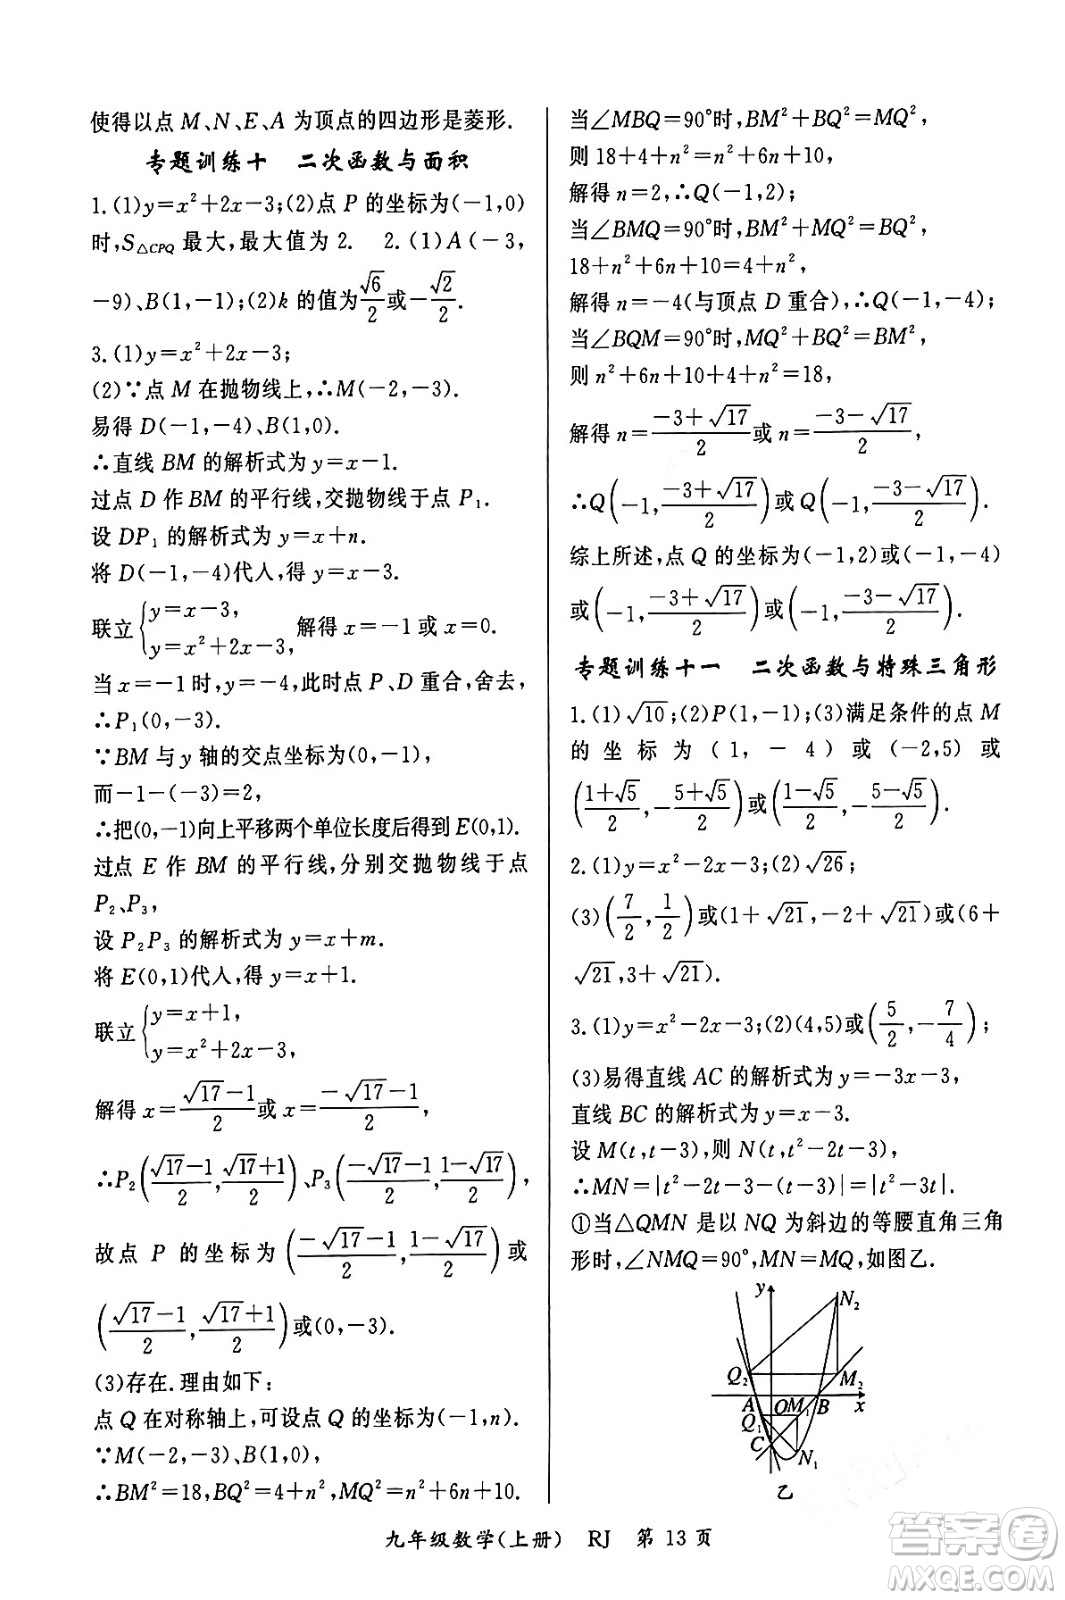 使得以点 M、N、E、A 为顶点的四边形是菱形.
专题训练十　二次函数与面积
1.(1)y=x²+2x-3;(2)点 P 的坐标为(-1,0)
时,S△CPQ 最大,最大值为 2.　2.(1)A(-3,
-9)、B(1,-1);(2)k 的值为√6/2或-√2/2.
3.(1)y=x²+2x-3;
(2)∵点 M 在抛物线上,∴M(-2,-3).
易得 D(-1,-4)、B(1,0).
∴直线 BM 的解析式为 y=x-1.
过点 D 作 BM 的平行线,交抛物线于点 P₁.
设 DP₁ 的解析式为 y=x+n.
将 D(-1,-4)代人,得 y=x-3.
联立{y=x-3, y=x²+2x-3, 解得 x=-1 或 x=0.
当 x=-1 时,y=-4,此时点 P、D 重合,舍去,
∴P₁(0,-3).
∵BM 与 y 轴的交点坐标为(0,-1),
而-1-(-3)=2,
∴把(0,-1)向上平移两个单位长度后得到 E(0,1).
过点 E 作 BM 的平行线,分别交抛物线于点
P₂、P₃,
设 P₂P₃ 的解析式为 y=x+m.
将 E(0,1)代人,得 y=x+1.
联立{y=x+1, y=x²+2x-3,
解得 x=(√17-1)/2或 x=(-√17-1)/2,
∴P₂((√17-1)/2,(√17+1)/2)、P₃((-√17-1)/2,(1-√17)/2),
故点 P 的坐标为((-√17-1)/2,(1-√17)/2)或
((√17-1)/2,(√17+1)/2)或(0,-3).
(3)存在.理由如下:
点 Q 在对称轴上,可设点 Q 的坐标为(-1,n).
∵M(-2,-3)、B(1,0),
∴BM²=18,BQ²=4+n²,MQ²=n²+6n+10.
当∠MBQ=90°时,BM²+BQ²=MQ²,
则 18+4+n²=n²+6n+10,
解得 n=2,∴Q(-1,2);
当∠BMQ=90°时,BM²+MQ²=BQ²,
18+n²+6n+10=4+n²,
解得 n=-4(与顶点 D 重合),∴Q(-1,-4);
当∠BQM=90°时,MQ²+BQ²=BM²,
则 n²+6n+10+4+n²=18,
解得 n=(-3+√17)/2或 n=(-3-√17)/2,
∴Q(-1,(-3+√17)/2)或 Q(-1,(-3-√17)/2).
综上所述,点 Q 的坐标为(-1,2)或(-1,-4)
或(-1,(-3+√17)/2)或(-1,(-3-√17)/2).
专题训练十一　二次函数与特殊三角形
1.(1)√10;(2)P(1,-1);(3)满足条件的点 M
的坐标为(1,-4)或(-2,5)或
((1+√5)/2,-(5+√5)/2)或((1-√5)/2,-(5-√5)/2).
2.(1)y=x²-2x-3;(2)√26;
(3)(7/2,1/2)或(1+√21,-2+√21)或(6+
√21,3+√21).
3.(1)y=x²-2x-3;(2)(4,5)或(5/2,-7/4);
(3)易得直线 AC 的解析式为 y=-3x-3,
直线 BC 的解析式为 y=x-3.
设 M(t,t-3),则 N(t,t²-2t-3),
∴MN=|t²-2t-3-(t-3)|=|t²-3t|.
①当△QMN 是以 NQ 为斜边的等腰直角三角
形时,∠NMQ=90°,MN=MQ,如图乙.
y
N₂
Q₂
M₂
A O M₁ B x
Q₁
C
N₁
乙
九年级数学(上册)　RJ　第 13 页